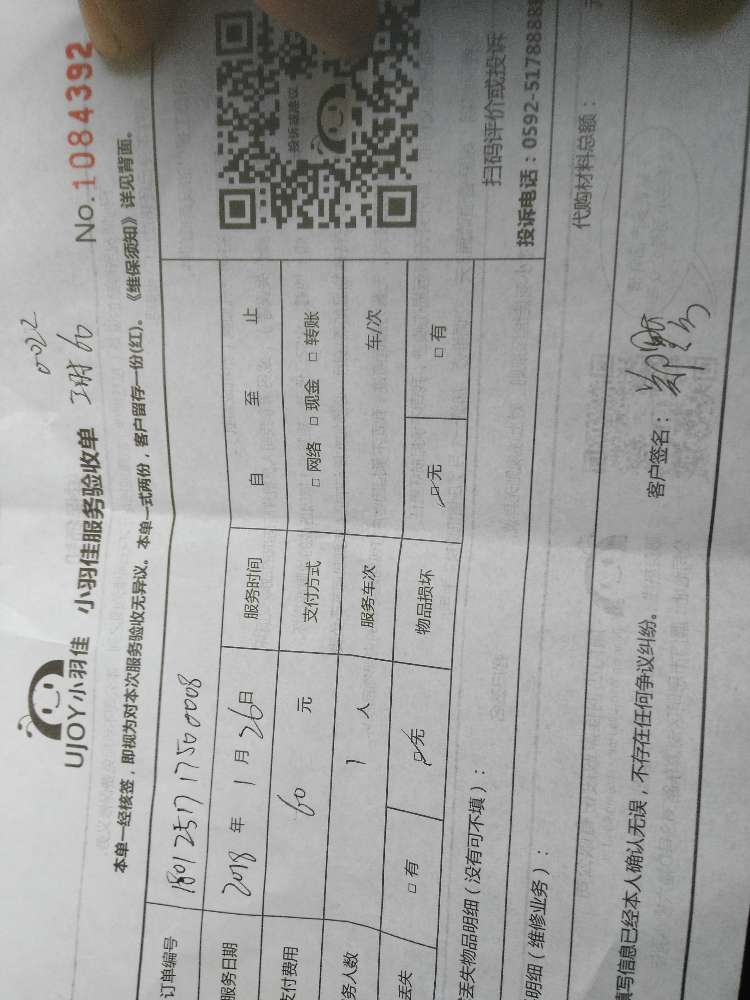 0022
UJOY小羽佳 小羽佳服务验收单 No.1084392
本单一经核签，即视为对本次服务验收无异议。本单一式两份，客户留存一份(红)。《维保须知》详见背面。
订单编号 1801251717500008
服务日期 2018 年 1 月 26 日 服务时间 自 至 止
支付费用 60 元 支付方式 □ 网络 □ 现金 □ 转账
务人数 1 人 服务车次 车/次
丢失 □ 有 □ 无 物品损坏 □ 无 □ 有
投诉或建议
扫码评价或投诉
投诉电话：0592-5178888
丢失物品明细（没有可不填）：
明细（维修业务）：
代购材料总额： 元
填写信息已经本人确认无误，不存在任何争议纠纷。 客户签名：